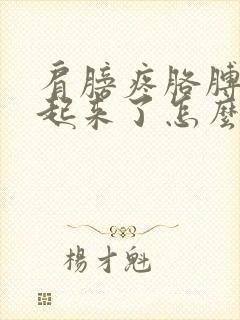 肩膀疼胳膊
起来了怎麽
楊才魁